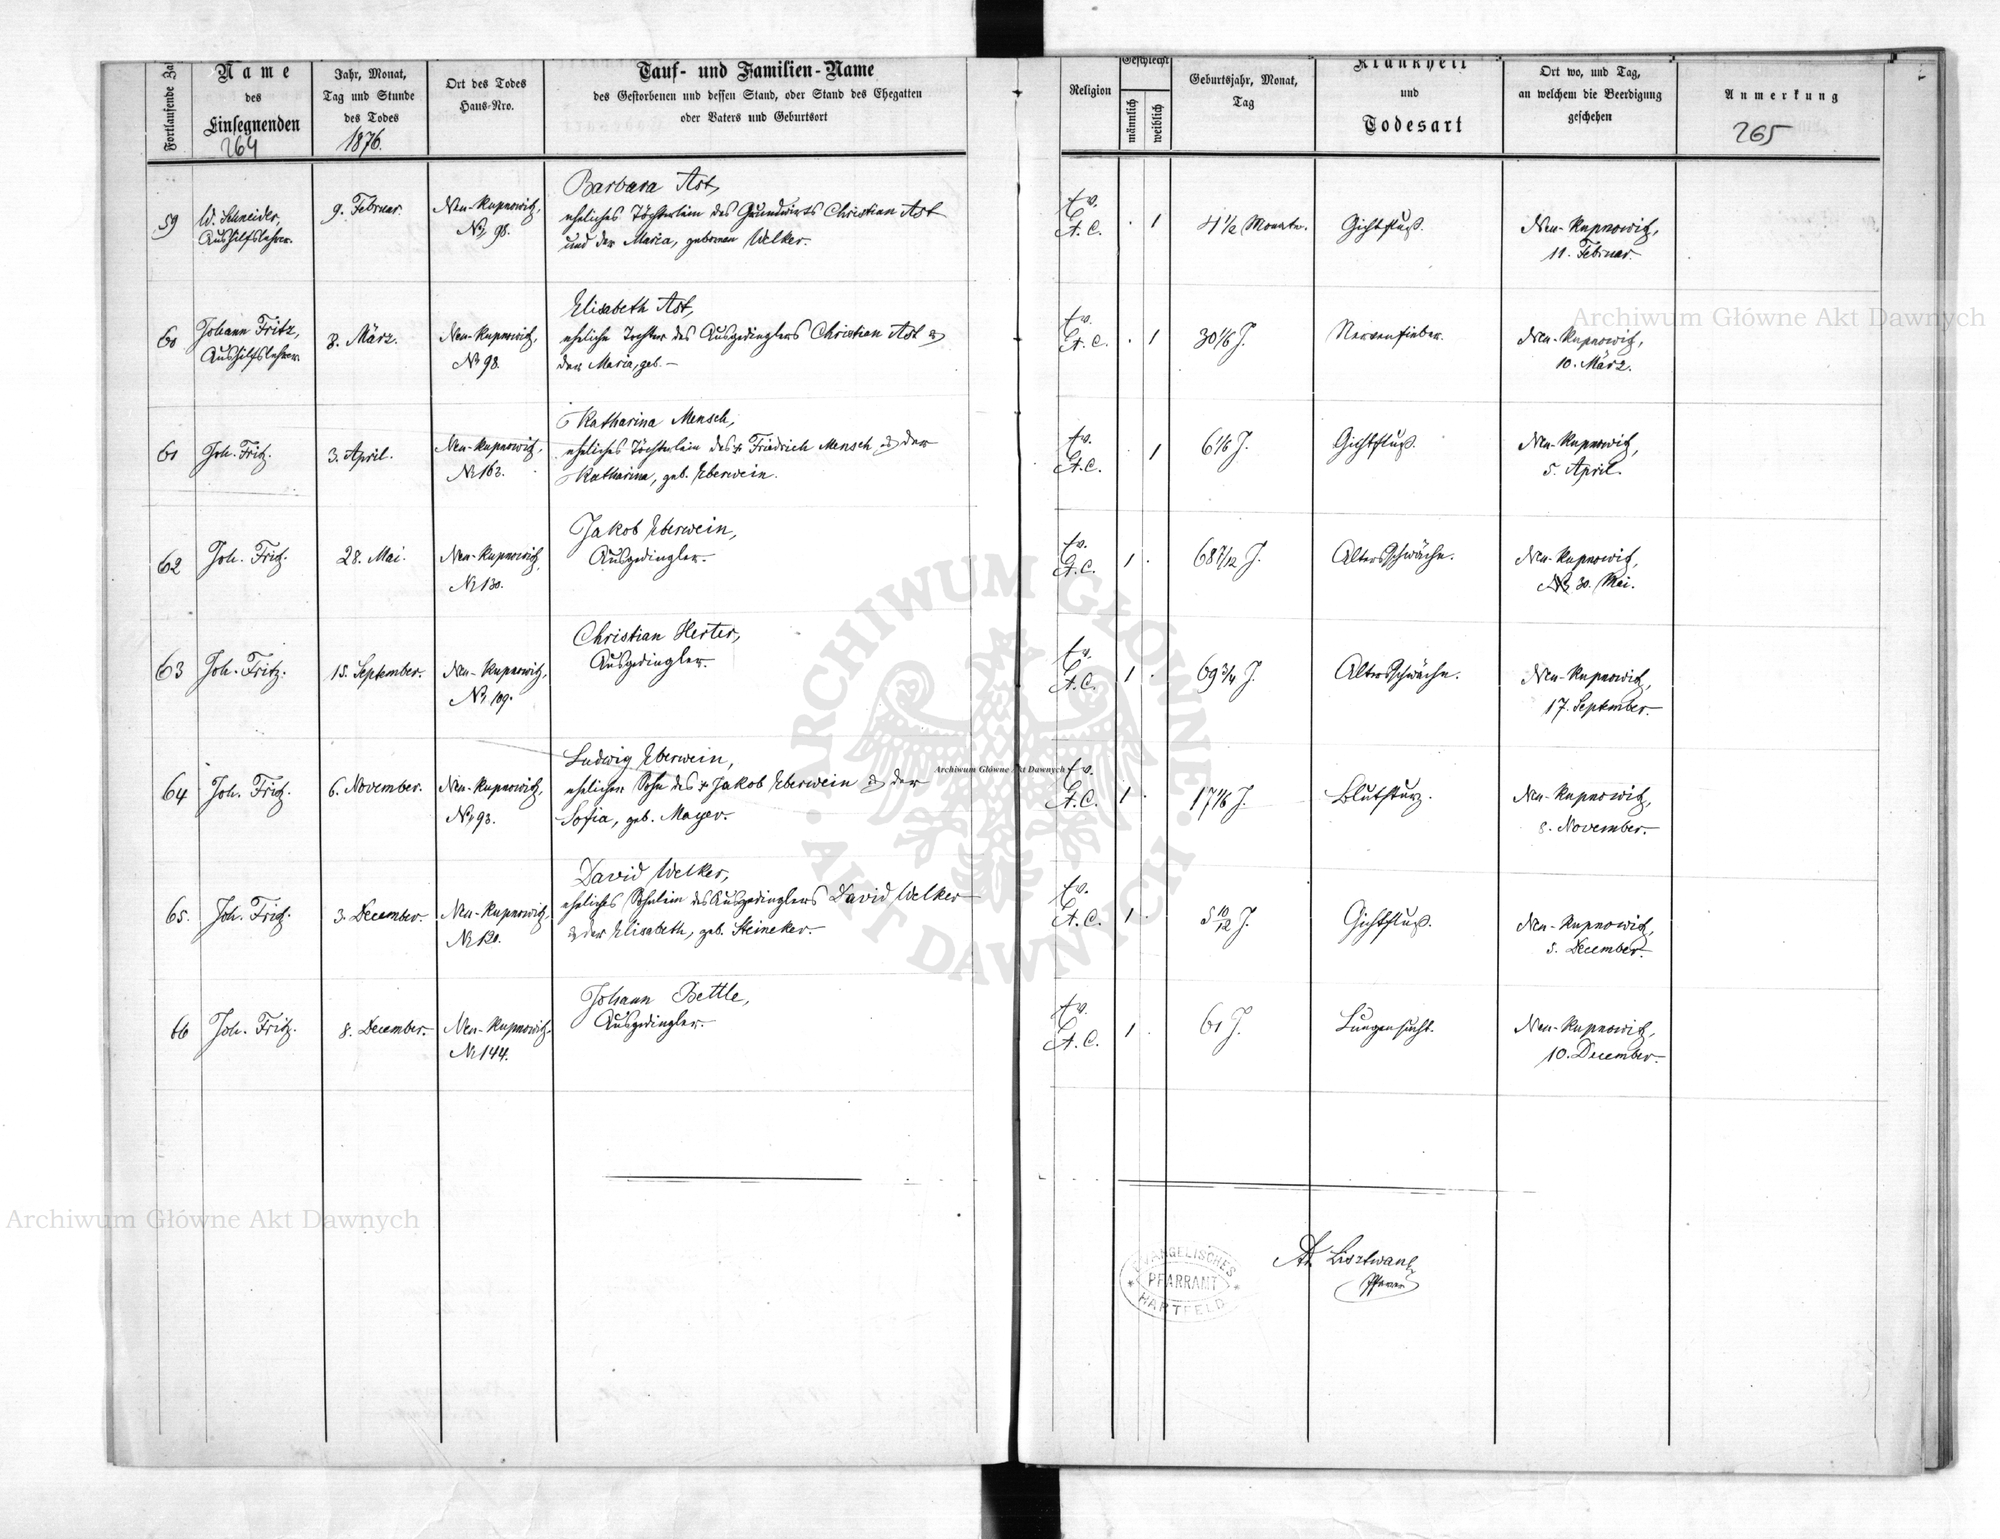 Fortlaufende Za
Name
des
Einsegnenden
264
Jahr, Monat,
Tag und Stunde
des Todes
1876.
Ort des Todes
Haus-Nro.
Tauf- und Familien-Name
des Gestorbenen und dessen Stand, oder Stand des Ehegatten
oder Vaters und Geburtsort
Religion
Geschlecht
männlich
weiblich
Geburtsjahr, Monat,
Tag
Krankheit
und
Todesart
Ort wo, und Tag,
an welchem die Beerdigung
geschehen
Anmerkung
265
59
W. Schneider,
Aushilfslehrer.
9. Februar.
Neu-Kupnowitz,
Nr 98.
Barbara Ast,
eheliches Töchterlein des Grundwirts Christian Ast
und der Maria, gebornen Welker.
Ev.
A. C.
. 1
4 1/2 Monate.
Gichtfluß.
Neu-Kupnowitz,
11. Februar.
60
Johann Fritz,
Aushilfslehrer.
8. März.
Neu-Kupnowitz,
Nr 98.
Elisabeth Ast,
eheliche Tochter des Ausgedinglers Christian Ast &
der Maria, geb. —
Ev.
A. C.
. 1
30 1/6 J.
Nervenfieber.
Neu-Kupnowitz,
10. März.
61
Joh. Fritz.
3. April.
Neu-Kupnowitz,
Nr 163.
Katharina Mensch,
eheliches Töchterlein des + Friedrich Mensch & der
Katharina, geb. Eberwein.
Ev.
A. C.
. 1
6 1/6 J.
Gichtfluß.
Neu-Kupnowitz,
5. April.
62
Joh. Fritz.
28. Mai.
Neu-Kupnowitz,
Nr 130.
Jakob Eberwein,
Ausgedingler.
Ev.
A. C.
1 .
68 7/12 J.
Altersschwäche.
Neu-Kupnowitz,
30. Mai.
63
Joh. Fritz.
15. September.
Neu-Kupnowitz,
Nr 109.
Christian Herter,
Ausgedingler.
Ev.
A. C.
1 .
69 3/4 J.
Altersschwäche.
Neu-Kupnowitz,
17. September.
64
Joh. Fritz.
6. November.
Neu-Kupnowitz,
Nr 93.
Ludwig Eberwein,
ehelicher Sohn des + Jakob Eberwein & der
Sofia, geb. Mayer.
Ev.
A. C.
1 .
17 1/6 J.
Blutsturz.
Neu-Kupnowitz,
8. November.
65.
Joh. Fritz.
3. December.
Neu-Kupnowitz,
Nr 120.
David Welker,
eheliches Söhnlein des Ausgedinglers David Welker
& der Elisabeth, geb. Steineker.
Ev.
A. C.
1 .
5 10/12 J.
Gichtfluß.
Neu-Kupnowitz,
5. December.
66
Joh. Fritz.
8. December.
Neu-Kupnowitz,
Nr 144.
Johann Bettle,
Ausgedingler.
Ev.
A. C.
1 .
61 J.
Lungensucht.
Neu-Kupnowitz,
10. December.
EVANGELISCHES
PFARRAMT
HARTFELD
Lisztwan
Pfarrer
Archiwum Główne Akt Dawnych
ARCHIWUM GŁÓWNE
AKT DAWNYCH
Archiwum Główne Akt Dawnych
Archiwum Główne Akt Dawnych